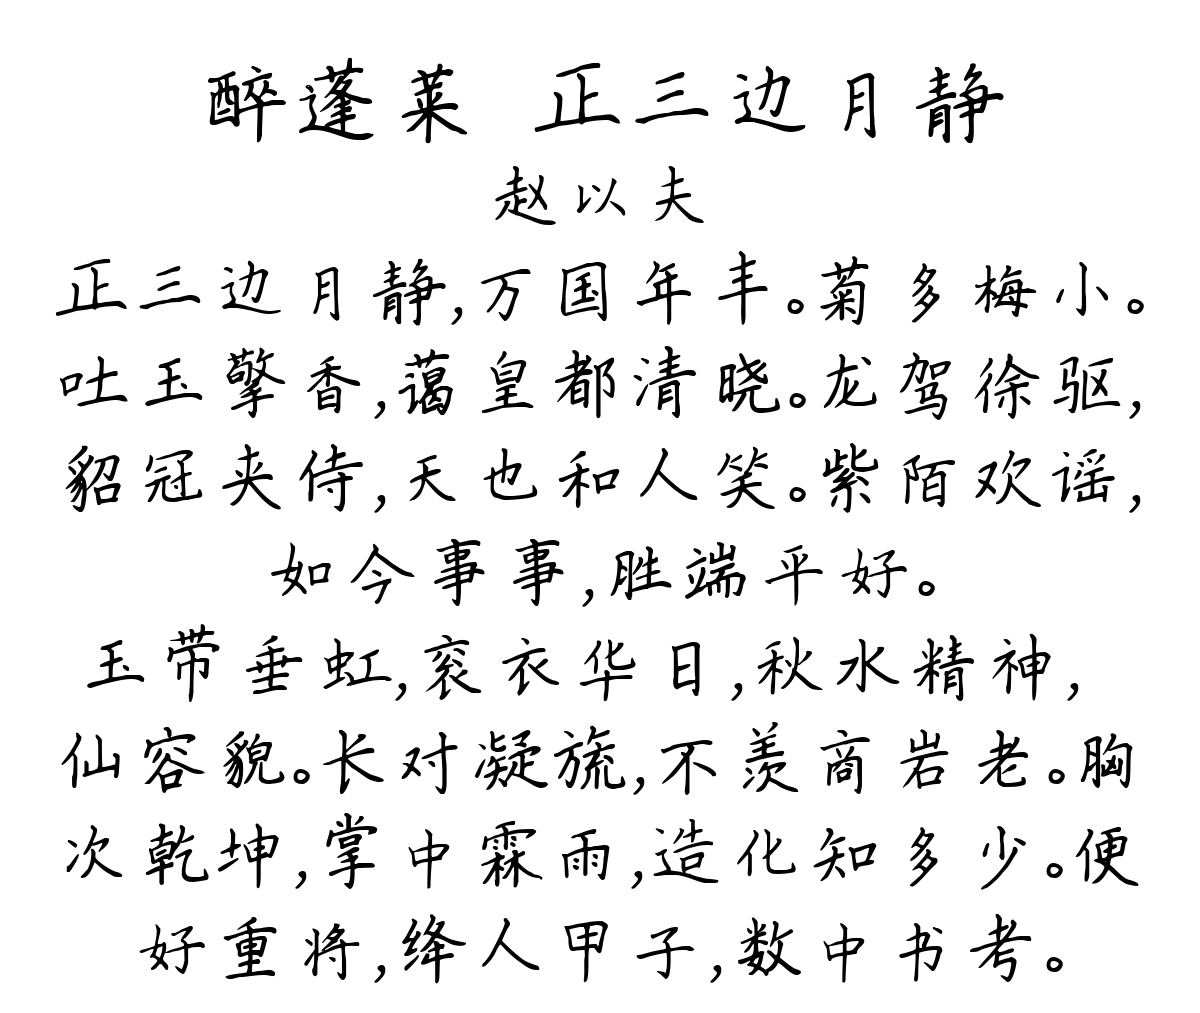 醉蓬莱 正三边月静
赵以夫
正三边月静,万国年丰。菊多梅小。
吐玉擎香,蔼皇都清晓。龙驾徐驱,
貂冠夹侍,天也和人笑。紫陌欢谣,
如今事事,胜端平好。
玉带垂虹,衮衣华日,秋水精神,
仙容貌。长对凝旒,不羡商岩老。胸
次乾坤,掌中霖雨,造化知多少。便
好重将,绛人甲子,数中书考。